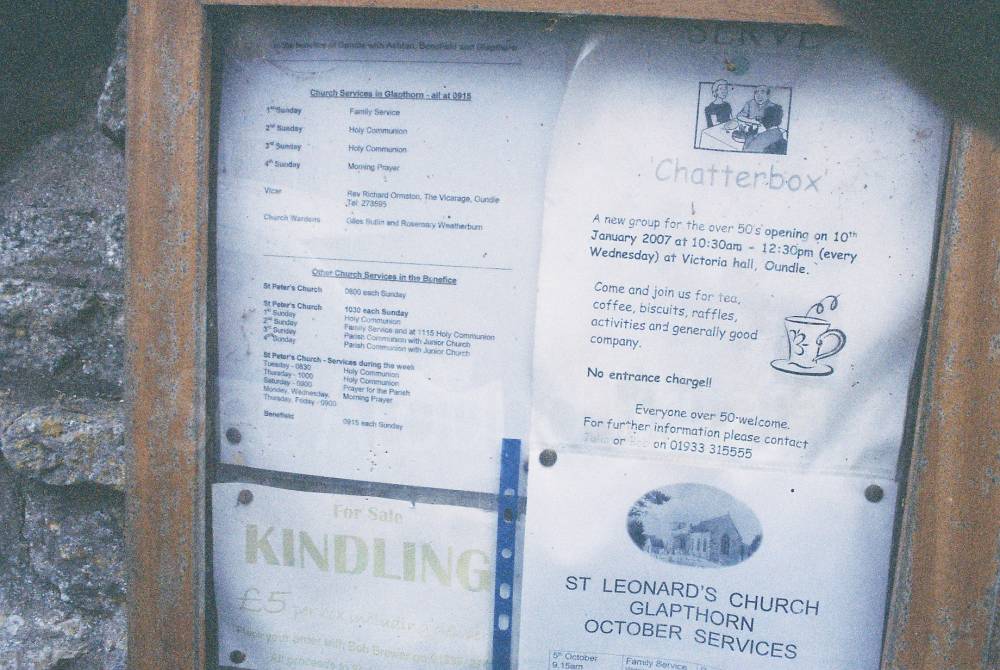 in the Benefice of Oundle with Ashton, Benefield and Glapthorn
Church Services in Glapthorn - all at 0915
1st Sunday Family Service
2nd Sunday Holy Communion
3rd Sunday Holy Communion
4th Sunday Morning Prayer
Vicar Rev Richard Ormston, The Vicarage, Oundle
Tel: 273595
Church Wardens Giles Butlin and Rosemary Weatherburn
Other Church Services in the Benefice
St Peter's Church 0800 each Sunday
St Peter's Church 1030 each Sunday
1st Sunday Holy Communion
2nd Sunday Family Service and at 1115 Holy Communion
3rd Sunday Parish Communion with Junior Church
4th Sunday Parish Communion with Junior Church
St Peter's Church - Services during the week
Tuesday - 0830 Holy Communion
Thursday - 1000 Holy Communion
Saturday - 0900 Prayer for the Parish
Monday, Wednesday, Morning Prayer
Thursday, Friday - 0900
Benefield 0915 each Sunday
SERVE
'Chatterbox'
A new group for the over 50's opening on 10th
January 2007 at 10:30am - 12:30pm (every
Wednesday) at Victoria hall, Oundle.
Come and join us for tea,
coffee, biscuits, raffles,
activities and generally good
company.
No entrance charge!!
Everyone over 50-welcome.
For further information please contact
or on 01933 315555
For Sale
KINDLING
£5 per
Place your order with Bob Brewer on
ST LEONARD'S CHURCH
GLAPTHORN
OCTOBER SERVICES
5th October Family Service
9.15am